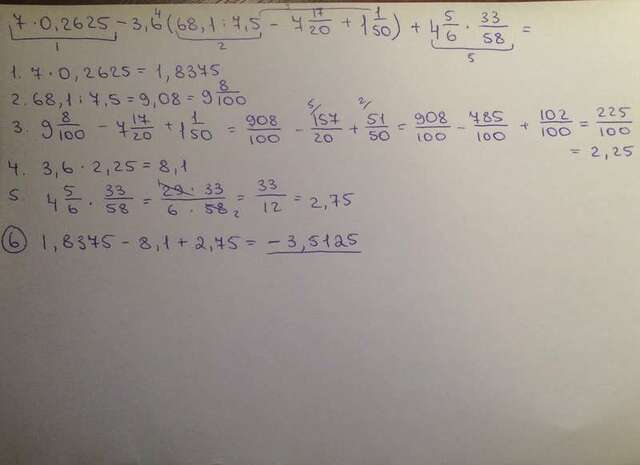 7 · 0,2625 - 3,6 (68,1 : 7,5 - 7 17/20 + 1 1/50) + 4 5/6 · 33/58 =
1 2 3 4 5
1. 7 · 0,2625 = 1,8375
2. 68,1 : 7,5 = 9,08 = 9 8/100
3. 9 8/100 - 7 17/20 + 1 1/50 = 908/100 - 5/ 157/20 + 2/ 51/50 = 908/100 - 785/100 + 102/100 = 225/100
= 2,25
4. 3,6 · 2,25 = 8,1
5. 4 5/6 · 33/58 = 29 · 33/6 · 58 2 = 33/12 = 2,75
6 1,8375 - 8,1 + 2,75 = - 3,5125